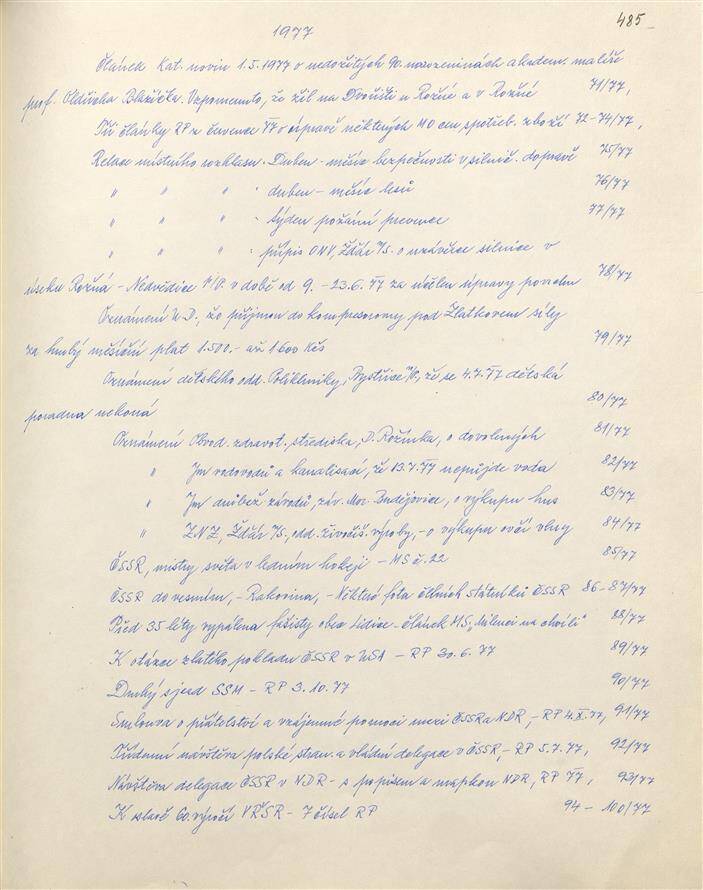 485
1977
Článek Kat. novin 1.5.1977 o nedožitých 90. narozeninách akadem. malíře
prof. Oldřicha Blažíčka. Vzpomenuto, že žil na Dvořišti u Rožné a v Rožné 71/77,
Tři články RP z července 77 o úpravě některých MO cen spotřeb. zboží 72-74/77,
Relace místního rozhlasu. Duben - měsíc bezpečnosti v silnič. dopravě 75/77
" " " . duben - měsíc lesů 76/77
" " " . týden požární prevence 77/77
" " " . přípis ONV, Žďár n/S. o uzávěrce silnice v
úseku Rožná - Nedvědice n/P. v době od 9. - 23.6.77 za účelem úpravy povrchu 78/77
Oznámení U.D., že přijmou do kompresorovny pod Zlatkovem síly
za hrubý měsíční plat 1.500.- až 1600 Kčs 79/77
Oznámení dětského odd. Polikliniky, Bystřice n/P., že se 4.7.77 dětská
poradna nekoná 80/77
Oznámení Obvod. zdravot. střediska, D. Rožínka, o dovolených 81/77
" Jm vodovodů a kanalisací, že 13.7.77 nepůjde voda 82/77
" Jm drůbež. závodů, záv. Mor. Budějovice, o výkupu hus 83/77
" ZNZ, Žďár n/S., odd. živočiš. výroby, - o výkupu ovčí vlny 84/77
ČSSR, mistry světa v ledním hokeji - MS č. 22 85/77
ČSSR do vesmíru, - Rakovina, - Některé fota čelních státníků ČSSR 86-87/77
Před 35 léty vypálena fašisty obec Lidice - článek M.S. „Milenci na chvíli" 88/77
K otázce zlatého pokladu ČSSR v USA - RP 30.6.77 89/77
Druhý sjezd SSM - RP 3.10.77 90/77
Smlouva o přátelství a vzájemné pomoci mezi ČSSR a NDR, - RP 4.X.77, 91/77
Třídenní návštěva polské, stran. a vládní delegace v ČSSR, - RP 5.7.77, 92/77
Návštěva delegace ČSSR v NDR - s popisem a mapkou NDR, RP 77, 93/77
K slavě 60. výročí VŘSR - 7 čísel RP 94 - 100/77